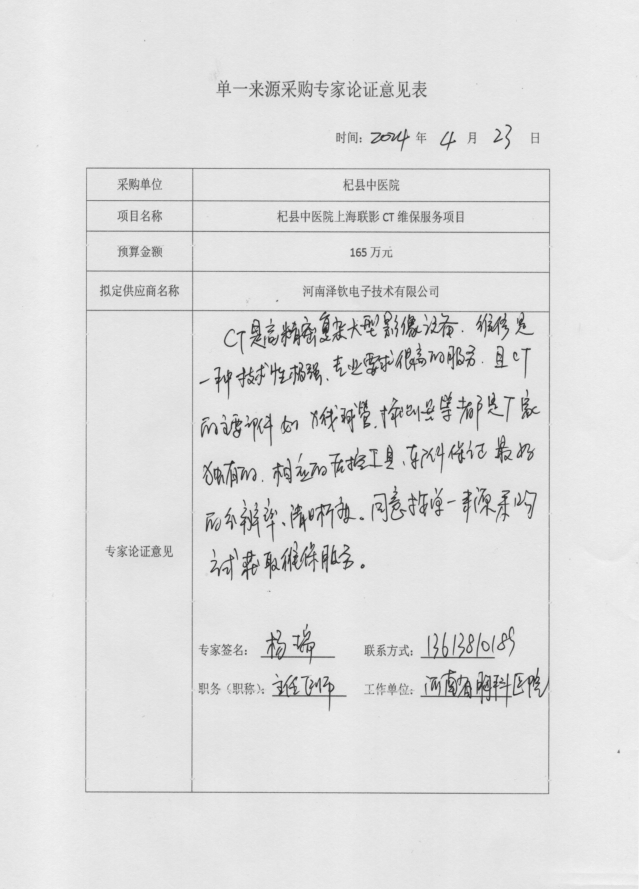 单一来源采购专家论证意见表
时间: 2024 年 4 月 23 日
采购单位 杞县中医院
项目名称 杞县中医院上海联影 CT 维保服务项目
预算金额 165 万元
拟定供应商名称 河南泽钦电子技术有限公司
专家论证意见
CT是高精密复杂大型影像设备. 维修是
一种技术性极强、专业要求很高的服务. 且CT
的主要部件如X线球管、探测器等都是厂家
独有的. 相应的 工具、软件保证最好
的分辨率、清晰度。同意按单一来源采购
方式获取维保服务。
专家签名: 杨瑞 联系方式: 13613810189
职务（职称）: 主任医师 工作单位: 河南省胸科医院